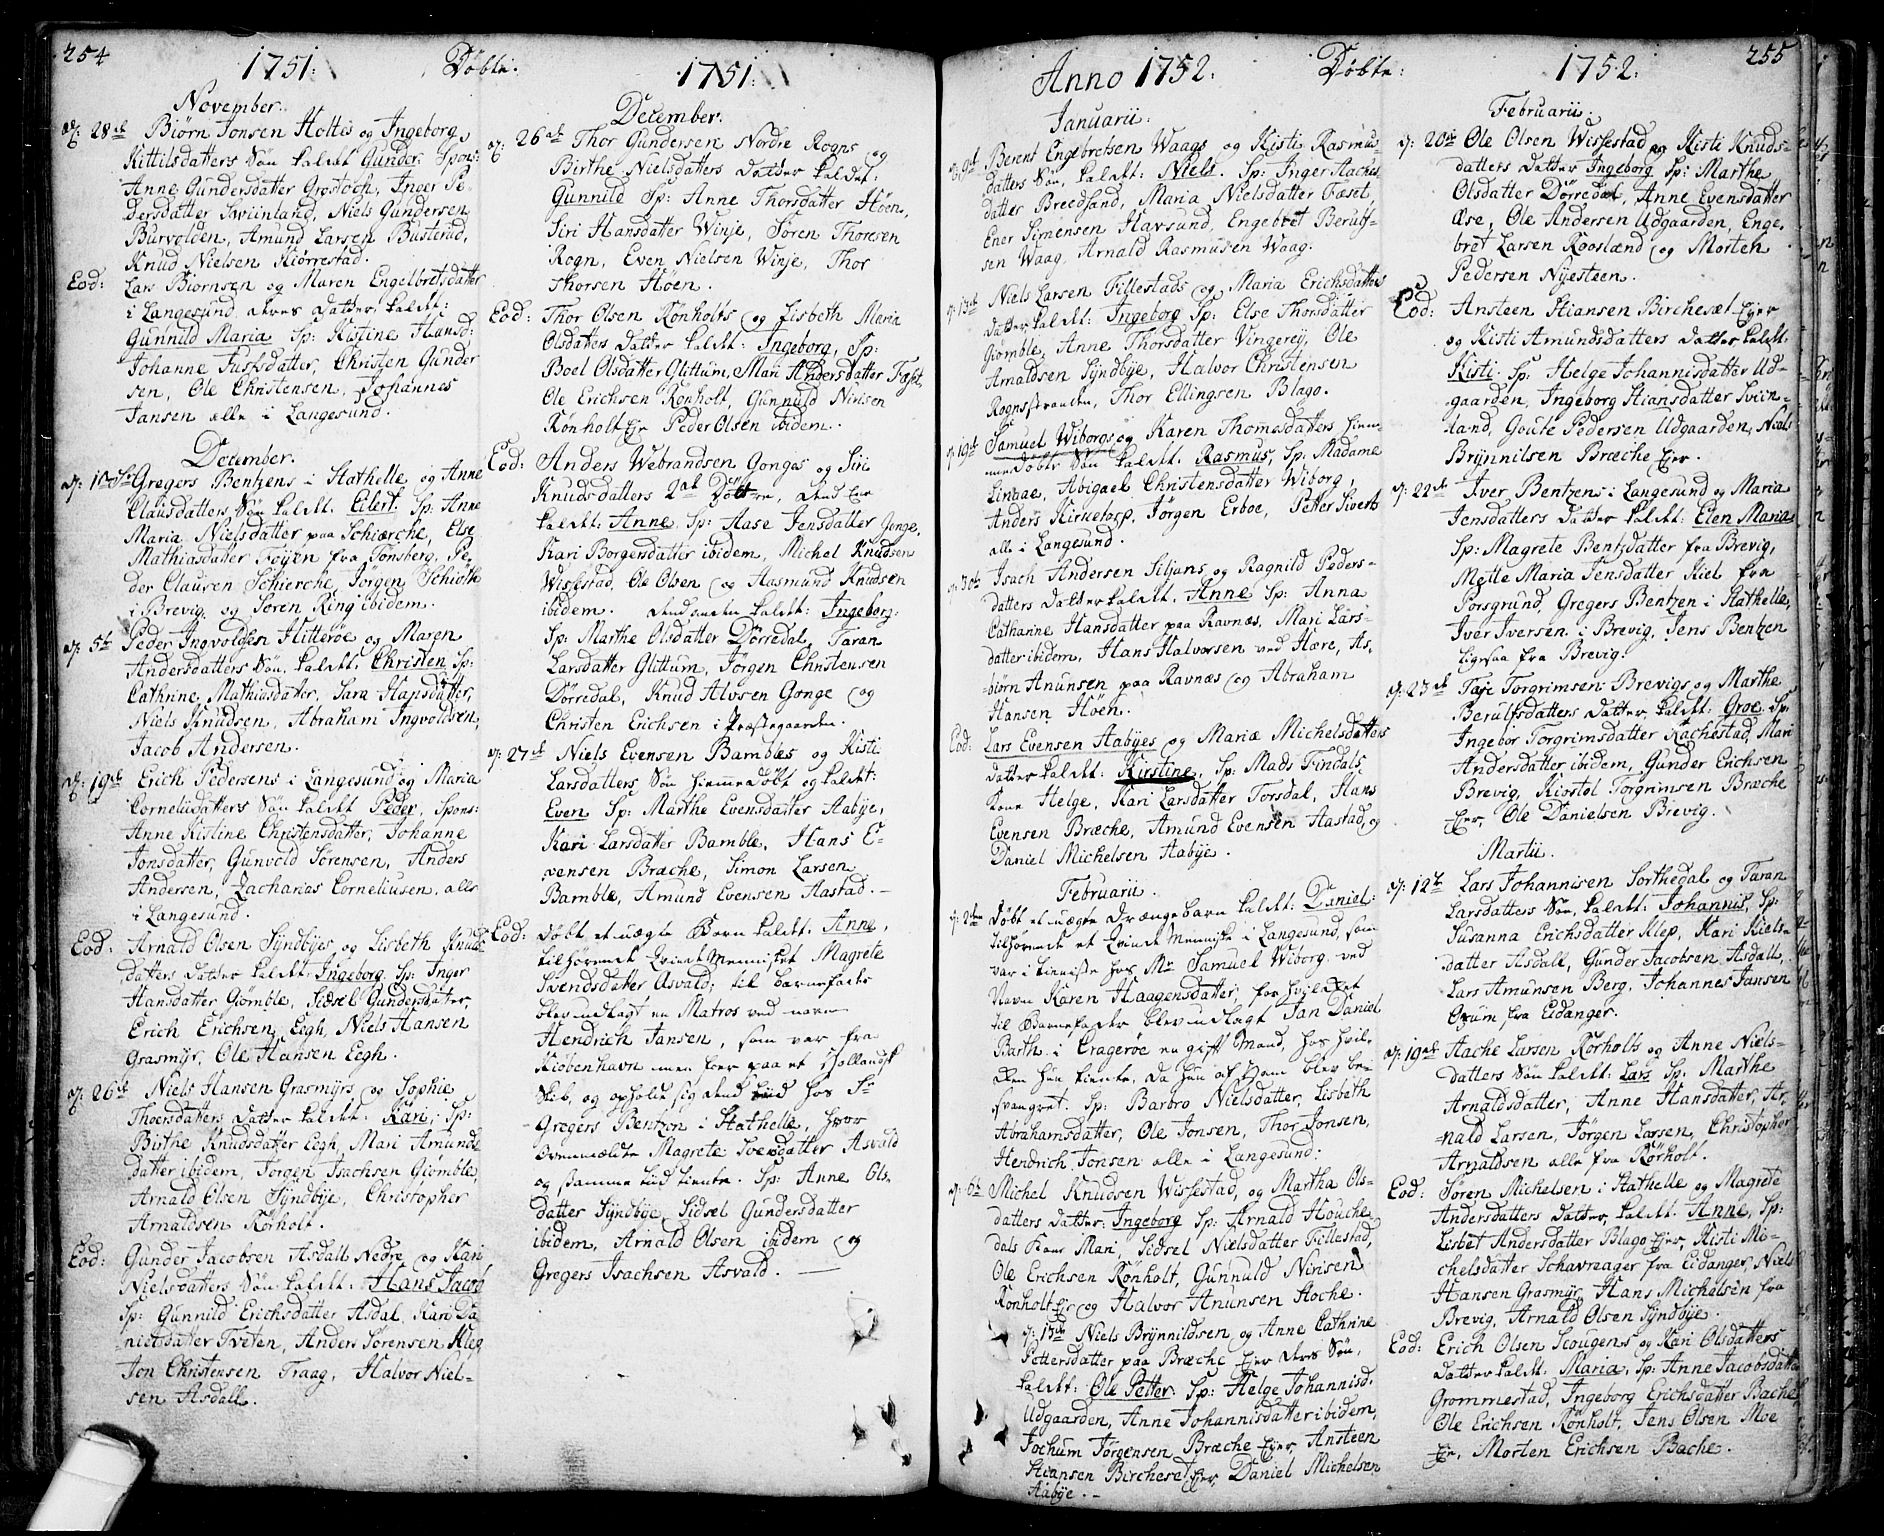 254
1751.
Döbte.
1751.
November.
d: 28de Biørn Jonsen Holtes og Ingeborg
Kittilsdatters Søn kaldt Gunder. Spons:
Anne Gundersdatter Grostoch, Inger Pe-
dersdatter Swiinland, Niels Gundersen
Burvolden, Amund Larsen Busterud,
Knud Nielsen Kiørrestad.
Eod: Lars Biørnsen og Maren Engelbretsdatter
i Langesund deres Datter kaldt:
Gunnild Maria Sp: Kistine Hansd:
Johanne Justsdatter, Christen Gunder
sen, Ole Christensen, Johannes
Jansen alle i Langesund.
December.
d: 1e Sr Gregers Bentzens i Stathelle og Anne
Clausdatters Søn kaldt. Eilert. Sp: Anne
Maria Nielsdatter paa Schiærche, Else
Mathiasdatter Føyen fra Tønsberg, Pe-
der Clausen Schierche, Jørgen Schiøth
i Brevig og Søren Ring ibidem.
d: 5t Peder Ingvoldsen Hitterøe og Maren
Andersdatters Søn kaldt. Christen Sp:
Cathrine Mathiasdatter, Sara Hansdatter,
Niels Knudsen, Abraham Ingvoldsen,
Jacob Andersen.
d: 19de Erich Pedersens i Langesund og Maria
Corneliidatters Søn kaldt Peder, Spons:
Anne Kistine Christensdatter, Johanne
Jonsdatter, Gunvold Sørensen, Anders
Andersen, Zacharias Corneliusen, alle
i Langesund.
Eod: Arnald Olsen Syndbyes og Lisbeth Knuds
datters Datter kaldt Ingeborg. Sp: Inger
Hansdatter Giømble, Sidsel Gundersdatter,
Erich Erichsen Eegh, Niels Hansen
Grasmyr, Ole Hansen Eegh.
d: 26de Niels Hansen Grasmyrs og Sophie
Thorsdatters Datter kaldt. Kari, Sp:
Birthe Knudsdatter Eegh, Mari Amunds
datter ibidem, Jørgen Isachsen Giømble,
Arnald Olsen Syndbye, Christopher
Arnaldsen Rørholt.
Eod: Gunder Jacobsen Asdall Nedre og Kari
Nielsdatters Søn kaldt. Hans Jacob
Sp: Gunnild Erichsdatter Asdal, Kari Da
nielsdatter Tveten, Anders Sørensen Klep
Jon Christensen Traag, Halvor Niel-
sen Asdall.
December.
d: 26de Thor Gundersen Nordre Rogns og
Birthe Nielsdatters Datter kaldet:
Gunnild Sp: Anne Thorsdatter Høen,
Siri Hansdatter Winje, Søren Thoresen
Rogn, Even Nielsen Winje, Thor
Thorsen Høen.
Eod: Thor Olsen Rønholts og Lisbeth Maria
Olsdatters Datter kaldt: Ingeborg, Sp:
Boel Olsdatter Glittum, Mari Andersdatter Fæset,
Ole Erichsen Rønholt, Gunnuld Nirisen
Rønholt Eje Peder Olsen ibidem.
Eod: Anders Webrandsen Gonges og Siri
Knudsdatters 2de Døttre, dend Ene
kaldt: Anne Sp: Aase Jensdatter Gonge,
Kari Borgersdatter ibidem, Michel Knudsen
Wissestad, Ole Olsen og Aasmund Knudsen
ibidem. dend anden kaldt: Ingeborg:
Sp: Marthe Olsdatter Dørredal, Taran
Larsdatter Glittum, Jørgen Christensen
Dørredal, Knud Alvsen Gonge og
Christen Erichsen i Præstegaarden.
d: 27de Niels Evensen Bambles og Kisti
Larsdatters Søn hiemmedøbt og kaldt:
Even Sp: Marthe Evensdatter Aabye,
Kari Larsdatter Bamble, Hans E-
vensen Bræche, Simon Larsen
Bamble, Amund Evensen Aastad.
Eod: døbt et uægte Barn kaldt. Anne,
tilhørende Qvindemennisket Magrete
Svendsdatter Asvald; til barnefader
blev udlagt en Matros ved navn
Hendrich Jansen, som var fra
Kiøbenhavn men foer paa et Hollandsk
Skib, og opholdt sig dend tiid hos Sr
Gregers Bentzon i Stathelle, hvor
ovenmældte Magrete Svensdatter Asvald
og samme tiid tiente. Sp: Anne Ols-
datter Syndbye, Sidsel Gundersdatter
ibidem, Arnald Olsen ibidem og
Gregers Isachsen Asvald.
Anno 1752.
Döbte:
1752.
255
Januarii.
d: 9de Berent Engebretsen Waags og Kisti Rasmus
datters Søn, kaldt: Niels. Sp: Inger Aaches
datter Breedsand, Maria Nielsdatter Fæset,
Ener Simensen Havsund, Engebret Berent-
sen Waag, Arnald Rasmusen Waag.
d: 13de Niels Larsen Fillestads og Maria Erichsdatters
datter kaldt: Ingeborg Sp: Else Thorsdatter
Giømble, Anne Thorsdatter Vingerey, Ole
Arnaldsen Syndbye, Halvor Christensen
Rognsstranden, Thor Ellingsen Blago.
d: 19de Samuel Wiborgs og Karen Thomasdatters hiem
mendøbte Søn kaldt. Rasmus, Sp: Madame
Linaae, Abigael Christensdatter Wiborg,
Anders Kirketorp, Jørgen Erboe, Petter Siverts
alle i Langesund.
d: 30de Isach Andersen Siljans og Ragnild Peders-
datters Datter kaldt. Anne Sp: Anna
Cathanne Hansdatter paa Ravnæs, Mari Lars-
datter ibidem, Hans Halvorsen ved Hære, As-
biørn Anunsen paa Ravnæs og Abraham
Hansen Høen.
Eod: Lars Evensen Aabyes og Mariæ Michelsdatters
datter kaldt: Kirstine, Sp: Mads Findals
kone Helge, Kari Larsdatter Torsdal, Hans
Evensen Bræche, Amund Evensen Aastad, og
Daniel Michelsen Aabye.
Februarii.
d: 2den Døbt et uægte Drængebarn kaldt: Daniel:
tilhørende et Qvinde Menniske i Langesund, som
var i tieniste hos Mr Samuel Wiborg, ved
Navn Karen Haagensdatter, for hvilcket
til Barnefader blev udlagt Jan Daniel
Barth i Cragerøe en gift Mand, hos hvil-
cken hun tiente, da hun af ham blev be-
svangret. Sp: Barbro Nielsdatter, Lisbeth
Abrahamsdatter, Ole Jonsen, Thor Jonsen,
Hendrich Jonsen alle i Langesund:
d: 6te Michel Knudsen Wissestad, og Martha Ols-
datters Datter: Ingeborg Sp: Arnald Houche
dals Kone Mari, Sidsel Nielsdatter Fillestad,
Ole Erichsen Rønholt, Gunnuld Nirisen
Rønholt Eje og Halvor Anunsen Hoche.
d: 13de Niels Brynnildsen og Anne Cathrine
Pettersdatter paa Bræche Ejer deres Søn,
kaldt: Ole Petter. Sp: Helge Johannisd.
Udgaarden, Anne Johannisdatter ibidem,
Jochum Jørgensen Bræche Ejer, Ansteen
Stiansen Birchesæt Ejer, Daniel Michelsen
Aabye.
Februarii.
d: 20de Ole Olsen Wissestad og Kisti Knuds-
datters Datter Ingeborg Sp: Marthe
Olsdatter Dørredal, Anne Evensdatter
Øse, Ole Andersen Udgaarden, Enge-
bret Larsen Rooslænd og Morten
Pedersen Nyesteen.
Eod: Ansteen Stiansen Birchesæt Ejer
og Kisti Amundsdatters Datter kaldt.
Kisti Sp: Helge Johannisdatter Ud-
gaarden, Ingeborg Stiansdatter Sviin-
land, Goute Pedersen Udgaarden, Niels
Brynnilsen Bræche Ejer.
d: 22de Iver Bentzens i Langesund og Maria
Jensdatters Datter kaldt: Elen Maria
Sp: Magrete Bentzdatter fra Brevig,
Mette Maria Jensdatter Kiel fra
Porsgrund, Gregers Bentzen i Stathelle,
Iver Iversen i Brevig, Jens Bentzen
ligesaa fra Brevig.
d: 23de Taje Torgrimsen Brevigs og Marthe
Berulfsdatters Datter, kaldt: Groe Sp:
Ingebor Torgrimsdatter Rachestad, Mari
Andersdatter ibidem, Gunder Erichsen
Brevig, Kiostøl Torgrimsen Bræche
Ejer, Ole Danielsen Brevig.
Martii.
d: 12te Lars Johannisen Sorthedal og Taran
Larsdatters Søn, kaldt: Johannis, Sp:
Susanna Erichsdatter Klep, Kari Niels-
datter Asdall, Gunder Jacobsen Asdall,
Lars Amunsen Berg, Johannes Jansen
Ørum fra Eidanger.
d: 19de Aache Larsen Rørholts og Anne Niels-
datters Søn kaldt: Lars Sp: Marthe
Arnaldsdatter, Anne Hansdatter, Ar-
nald Larsen, Jørgen Larsen, Christopher
Arnaldsen alle fra Rørholt.
Eod: Søren Michelsen i Stathelle og Magrete
Andersdatters Datter, kaldt. Anne, Sp:
Lisbet Andersdatter Blago Ejer, Kisti Mi-
chelsdatter Schavreager fra Eidanger, Niels
Hansen Grasmyr, Hans Michelsen fra
Brevig, Arnald Olsen Syndbye.
Eod: Erich Olsen Scougens og Kari Olsdatters
Datter kaldt: Maria, Sp: Anne Jacobsdatter
Grommestad, Ingeborg Erichsdatter Bache,
Ole Erichsen Rønholt, Jens Olsen Moe
Eje, Morten Erichsen Bache.